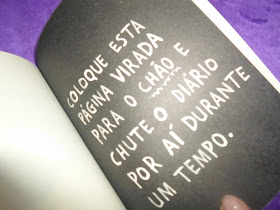 COLOQUE ESTA
PÁGINA VIRADA
PARA O CHÃO E
CHUTE O DIÁRIO
POR AÍ DURANTE
UM TEMPO.